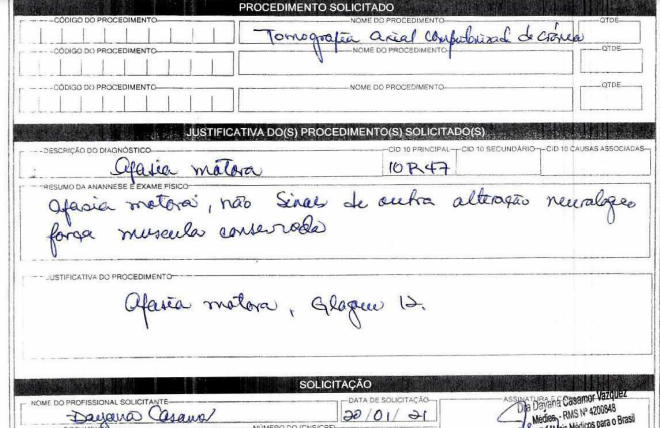 PROCEDIMENTO SOLICITADO
CÓDIGO DO PROCEDIMENTO NOME DO PROCEDIMENTO QTDE
Tomografia axial computorizad de crânea
CÓDIGO DO PROCEDIMENTO NOME DO PROCEDIMENTO QTDE
CÓDIGO DO PROCEDIMENTO NOME DO PROCEDIMENTO QTDE
JUSTIFICATIVA DO(S) PROCEDIMENTO(S) SOLICITADO(S)
DESCRIÇÃO DO DIAGNÓSTICO CID 10 PRINCIPAL CID 10 SECUNDÁRIO CID 10 CAUSAS ASSOCIADAS
Afasia mátora 10R47
RESUMO DA ANANNESE E EXAME FÍSICO
Afasia motora, não Sinas de outra alteração neuralogeo
força muscula conservada
JUSTIFICATIVA DO PROCEDIMENTO
Afasia motora,
SOLICITAÇÃO
NOME DO PROFISSIONAL SOLICITANTE DATA DE SOLICITAÇÃO
Dayana Casamor 20/01/21
Dra Dayana Casamor Vazquez
Médica - RMS Nº 4200848
Mais Médicos para o Brasil
NÚMERO DO (CNS/CPF)